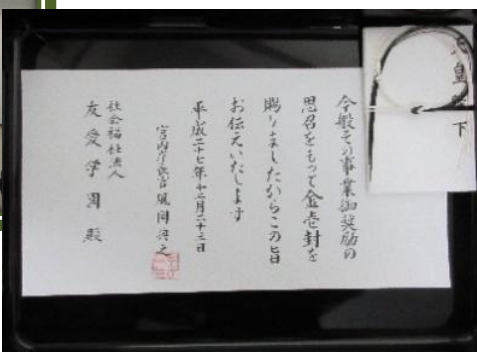 今般その事業御奨励の
思召をもって金壱封を
賜りましたからこの旨
お伝えいたします
平成二十七年十二月二十三日
宮内庁長官風岡典之
社会福祉法人
友愛学園殿
皇
下